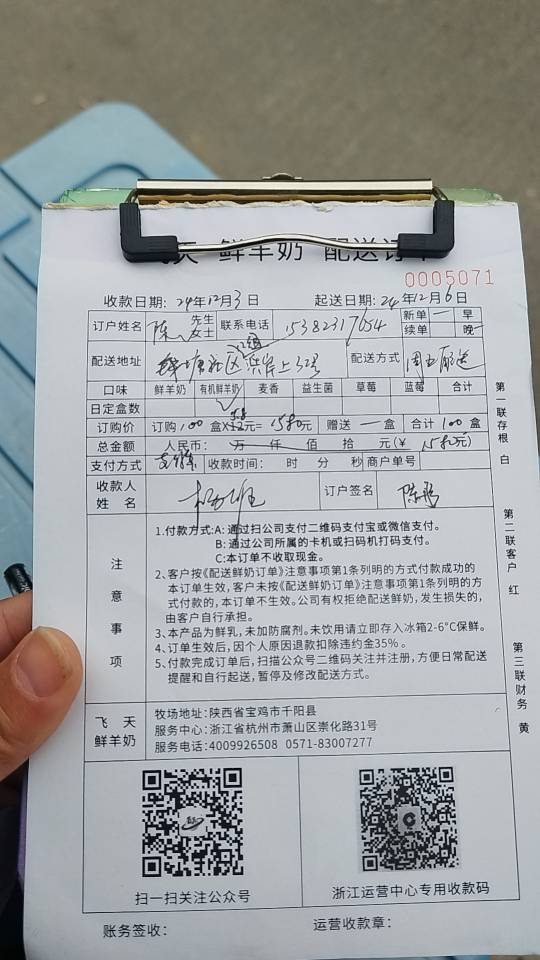 飞天 鲜羊奶 配送订单
0005071
收款日期: 24年12月3日 起送日期: 24年12月6日
订户姓名 陈 先生 女士 联系电话 15382317654 新单 一 早
续单 晚
配送地址 社区 岸上 配送方式 周五配送
口味 鲜羊奶 有机鲜羊奶 麦香 益生菌 草莓 蓝莓 合计
日定盒数
订购价 订购100盒× 元=1580元 赠送 一 盒 合计100盒
总金额 人民币: 万 仟 佰 拾 元(¥ 1580元)
支付方式 支付宝 收款时间: 时 分 秒 商户单号
收款人姓名 杨 订户签名 陈
注意事项
1.付款方式:A: 通过扫公司支付二维码支付宝或微信支付。
B: 通过公司所属的卡机或扫码机打码支付。
C: 本订单不收取现金。
2、客户按《配送鲜奶订单》注意事项第1条列明的方式付款成功的
本订单生效,客户未按《配送鲜奶订单》注意事项第1条列明的方
式付款的,本订单不生效。公司有权拒绝配送鲜奶,发生损失的,
由客户自行承担。
3、本产品为鲜乳,未加防腐剂。未饮用请立即存入冰箱2-6°C保鲜。
4、订单生效后,因个人原因退款扣除违约金35%。
5、付款完成订单后,扫描公众号二维码关注并注册,方便日常配送
提醒和自行起送,暂停及修改配送方式。
飞天
鲜羊奶
牧场地址:陕西省宝鸡市千阳县
服务中心:浙江省杭州市萧山区崇化路31号
服务电话:4009926508 0571-83007277
扫一扫关注公众号
浙江运营中心专用收款码
账务签收: 运营收款章:
第一联存根 白
第二联客户 红
第三联财务 黄